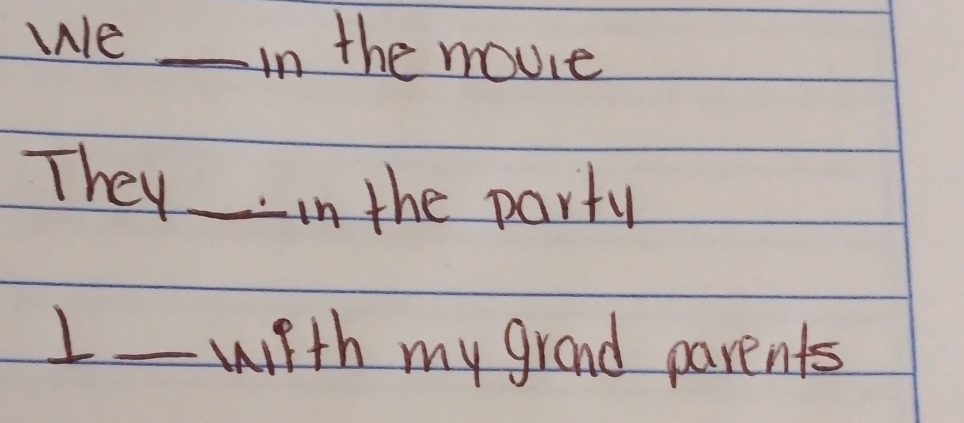 We __ in the movie
They __ in the party
I __ with my grand parents